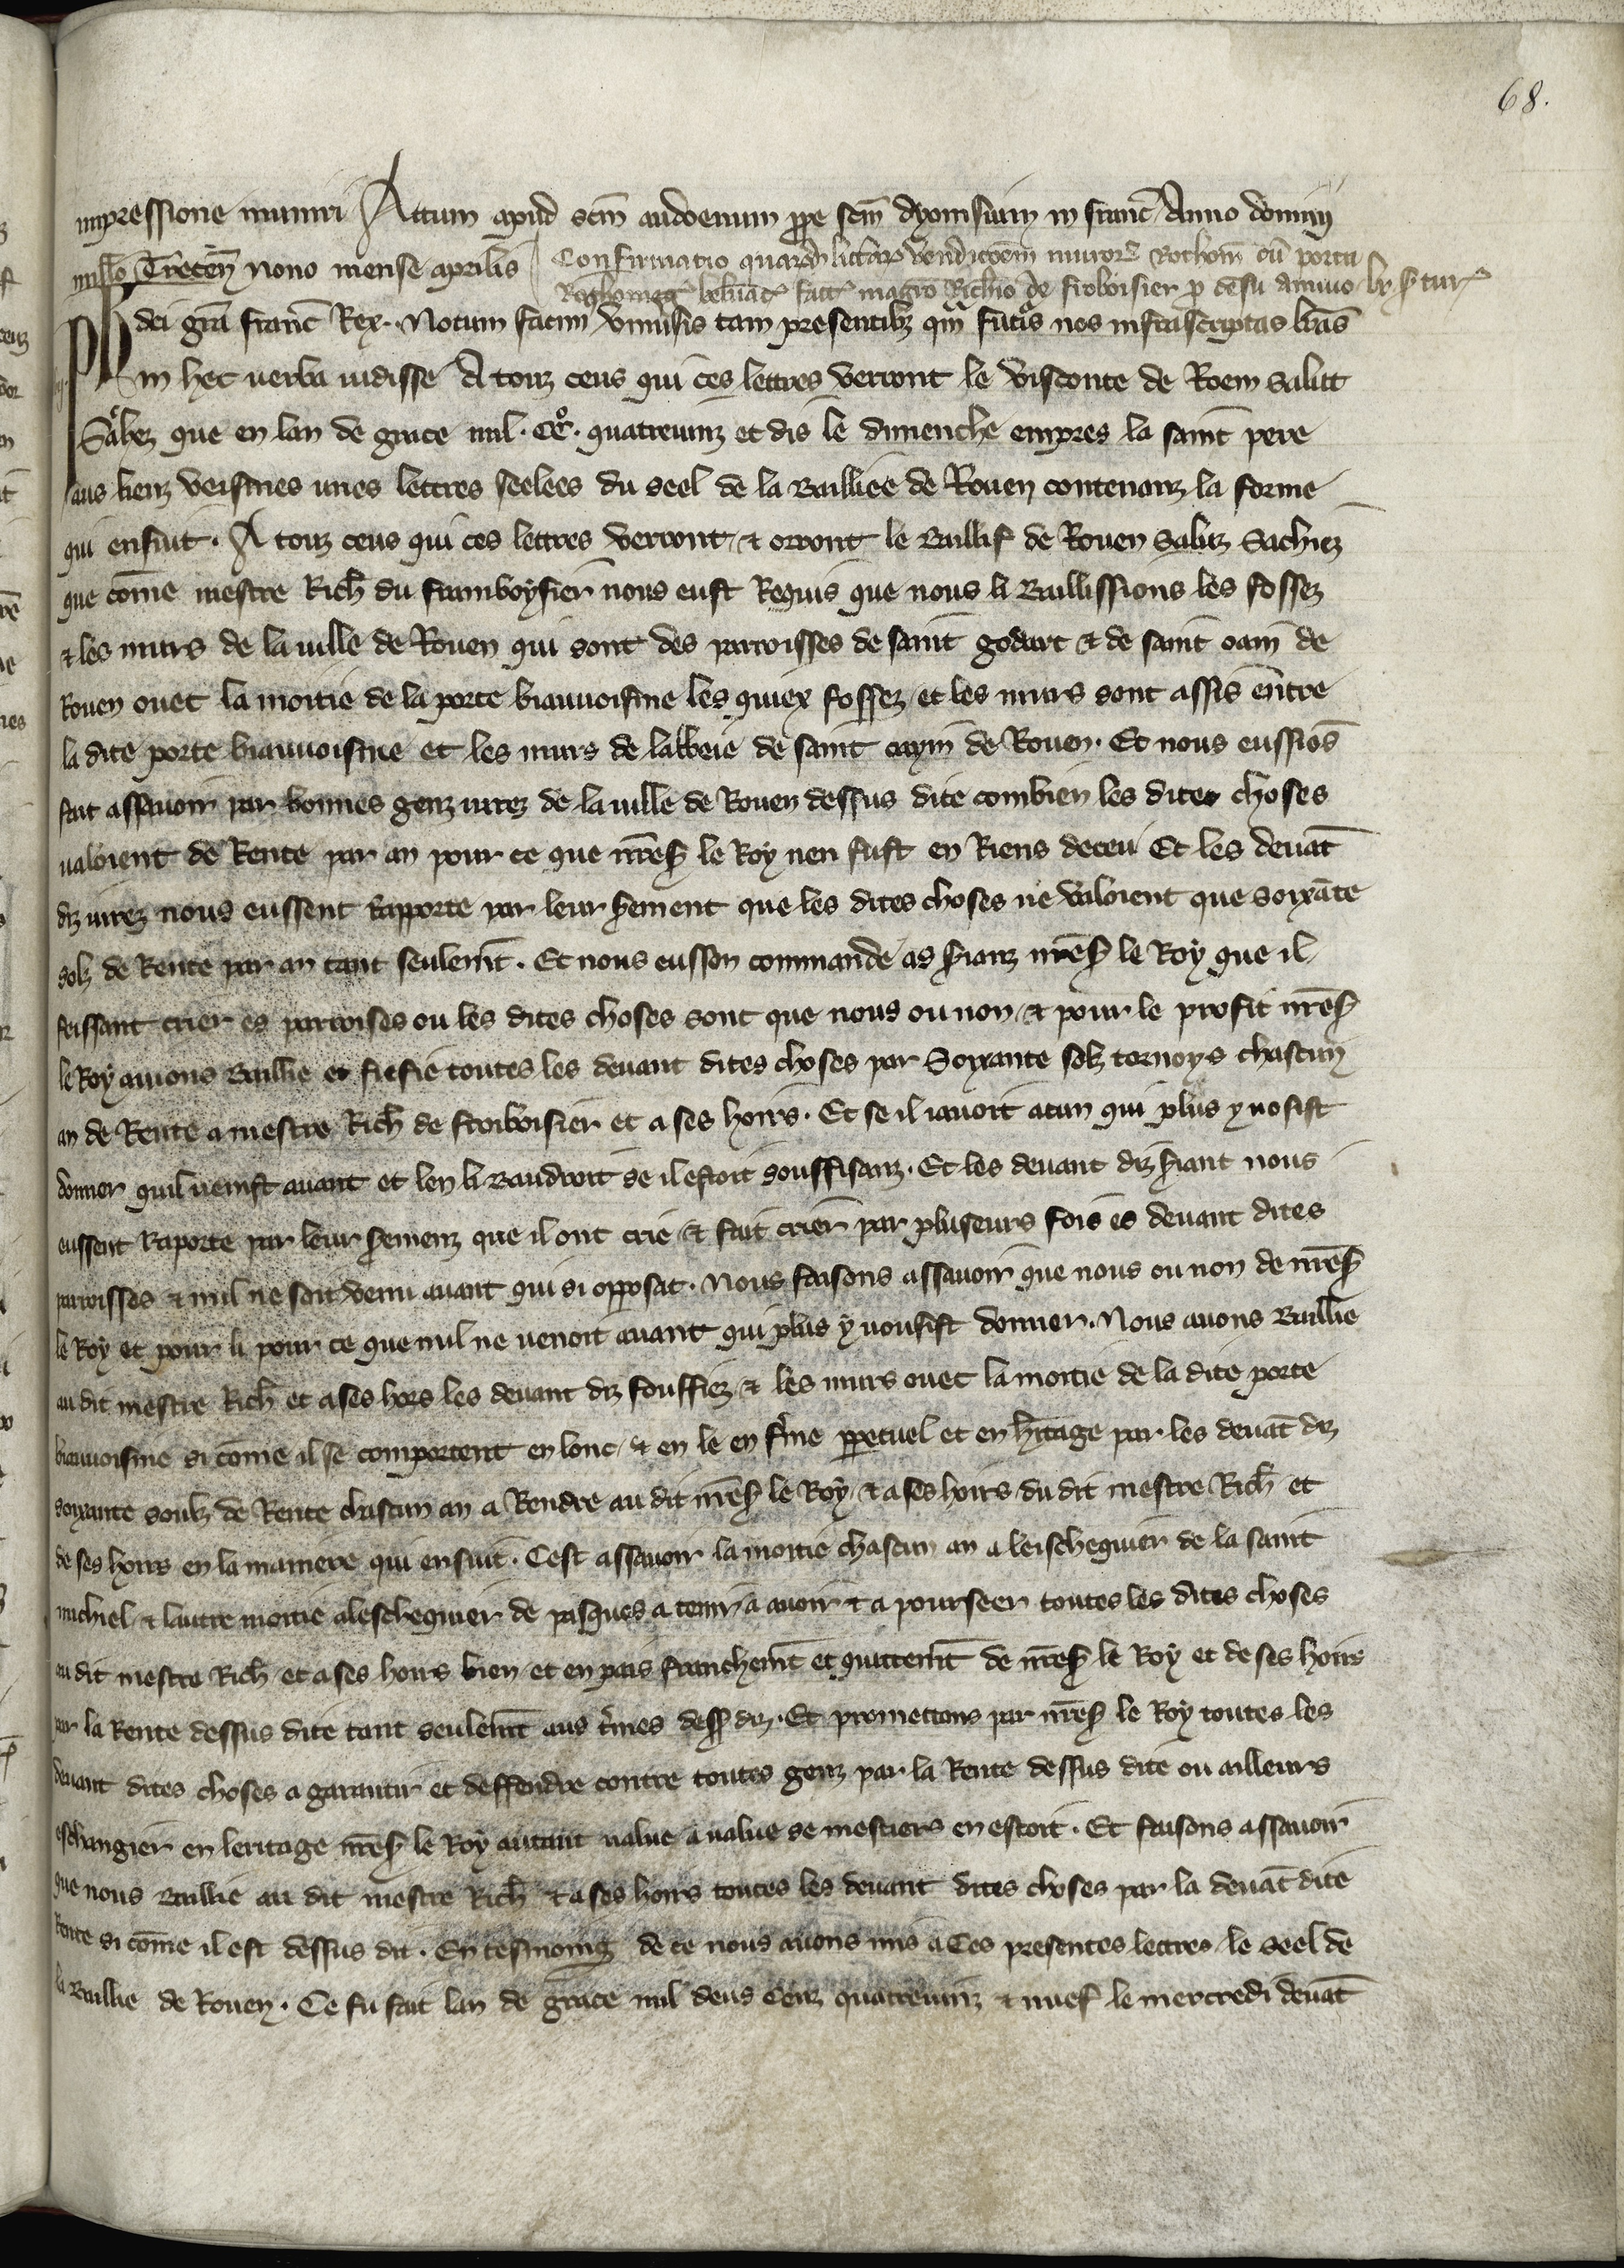 68.
impressione muniri Actum apud scm audoenum ppe scm dyonisium in franc Anno domini
millo Trecen nono mense aprilis
Confirmatio quard litterar vendicoem muror Rothom cu porta
belvac fact magro Richo de froboisier p censu annuo lx s tur
Ph dei gra franc Rex. Notum facim universis tam presentibz qm futis nos infrascriptas lras
in hec verba vidisse A touz ceus qui ces lettres verront le visconte de Roem salut
Sachez que en lan de grace mil. CC. quatrevinz et dis le dimenche empres la saint pere
aus liens veismes unes lettres seelees du seel de la Baillie de Rouen contenanz la forme
qui ensuit. A touz ceus qui ces lettres verront & orront le Baillif de Rouen Saluz Sachiez
que come mestre Rich du framboysier nous eust Requis que nous li Baillissions les fossez
& les murs de la ville de Rouen qui sont des parroisses de saint godart & de saint oain de
Rouen ovec la moitie de la porte biauvoisine les quiex fossez et les murs sont assis entre
la dite porte biauvoisine et les murs de labbeie de saint oayn de Rouen. Et nous eussios
fait assavoir par bonnes genz jurez de la ville de Rouen dessus dite combien les dites choses
valoient de Rente par an pour ce que nres le Roy nen fust en Riens deceu Et les devat
diz jurez nous eussent Rapporte par leur serement que les dites choses ne valoient que soixate
solz de Rente par an tant seulemt. Et nous eusson commande as sianz nres le Roy que il
feissant crier es parroises ou les dites choses sont que nous ou non & pour le profit nres
le Roy avions Baillie et fiefie toutes les devant dites choses par Soixante solz tornoys chascun
an de Rente a mestre Rich de froiboisier et a ses hoirs. Et se il i avoit acun qui plus y vosist
donner quil venist avant et len li Baudroit se il estoit souffisanz. Et les devant diz siant nous
eussent Raporte par leur seremenz que il ont crie & fait crier par pluseurs fois es devant dites
parroisses & nul ne soit venu avant qui si opposat. Nous faisons assavoir que nous ou non de nres
le Roy et pour li pour ce que nul ne venoit avant qui plus y vousist donner. Nous avons Baillie
au dit mestre Rich et a ses hors les devant diz foussiez & les murs ovec la moitie de la dite porte
biauvoisine si come il se comportent en lonc & en le en fine ppetuel et en hitage par les devat diz
soixante soulz de Rente chascun an a Rendre au dit nres le Roy & a ses hoirs du dit mestre Rich et
de ses hoirs en la maniere qui ensuit. Cest assavoir la moitie chascun an a leischequier de la saint
michiel & lautre moitie a leschequier de pasques a tenir a avoir & a pourseer toutes les dites choses
au dit mestre Rich et a ses hoirs bien et en pais franchemt et quittemt de nres le Roy et de ses hoirs
par la Rente dessus dite tant seulemt aus times dess diz. Et promettons par nres le Roy toutes les
devant dites choses a garantir et deffendre contre toutes genz par la Rente dessus dite ou ailleurs
eschangier en leritage nres le Roy autant value a value se mestiers en estoit. Et faisons assavoir
que nous Baillie au dit mestre Rich & a ses hoirs toutes les devant dites choses par la devat dite
Rente si come il est dessus dit. En tesmoing de ce nous avons mis a Ces presentes lettres le seel de
la Baillie de Rouen. Ce fu fait lan de grace mil deus Cenz quatrevinz & nuef le mercredi devat